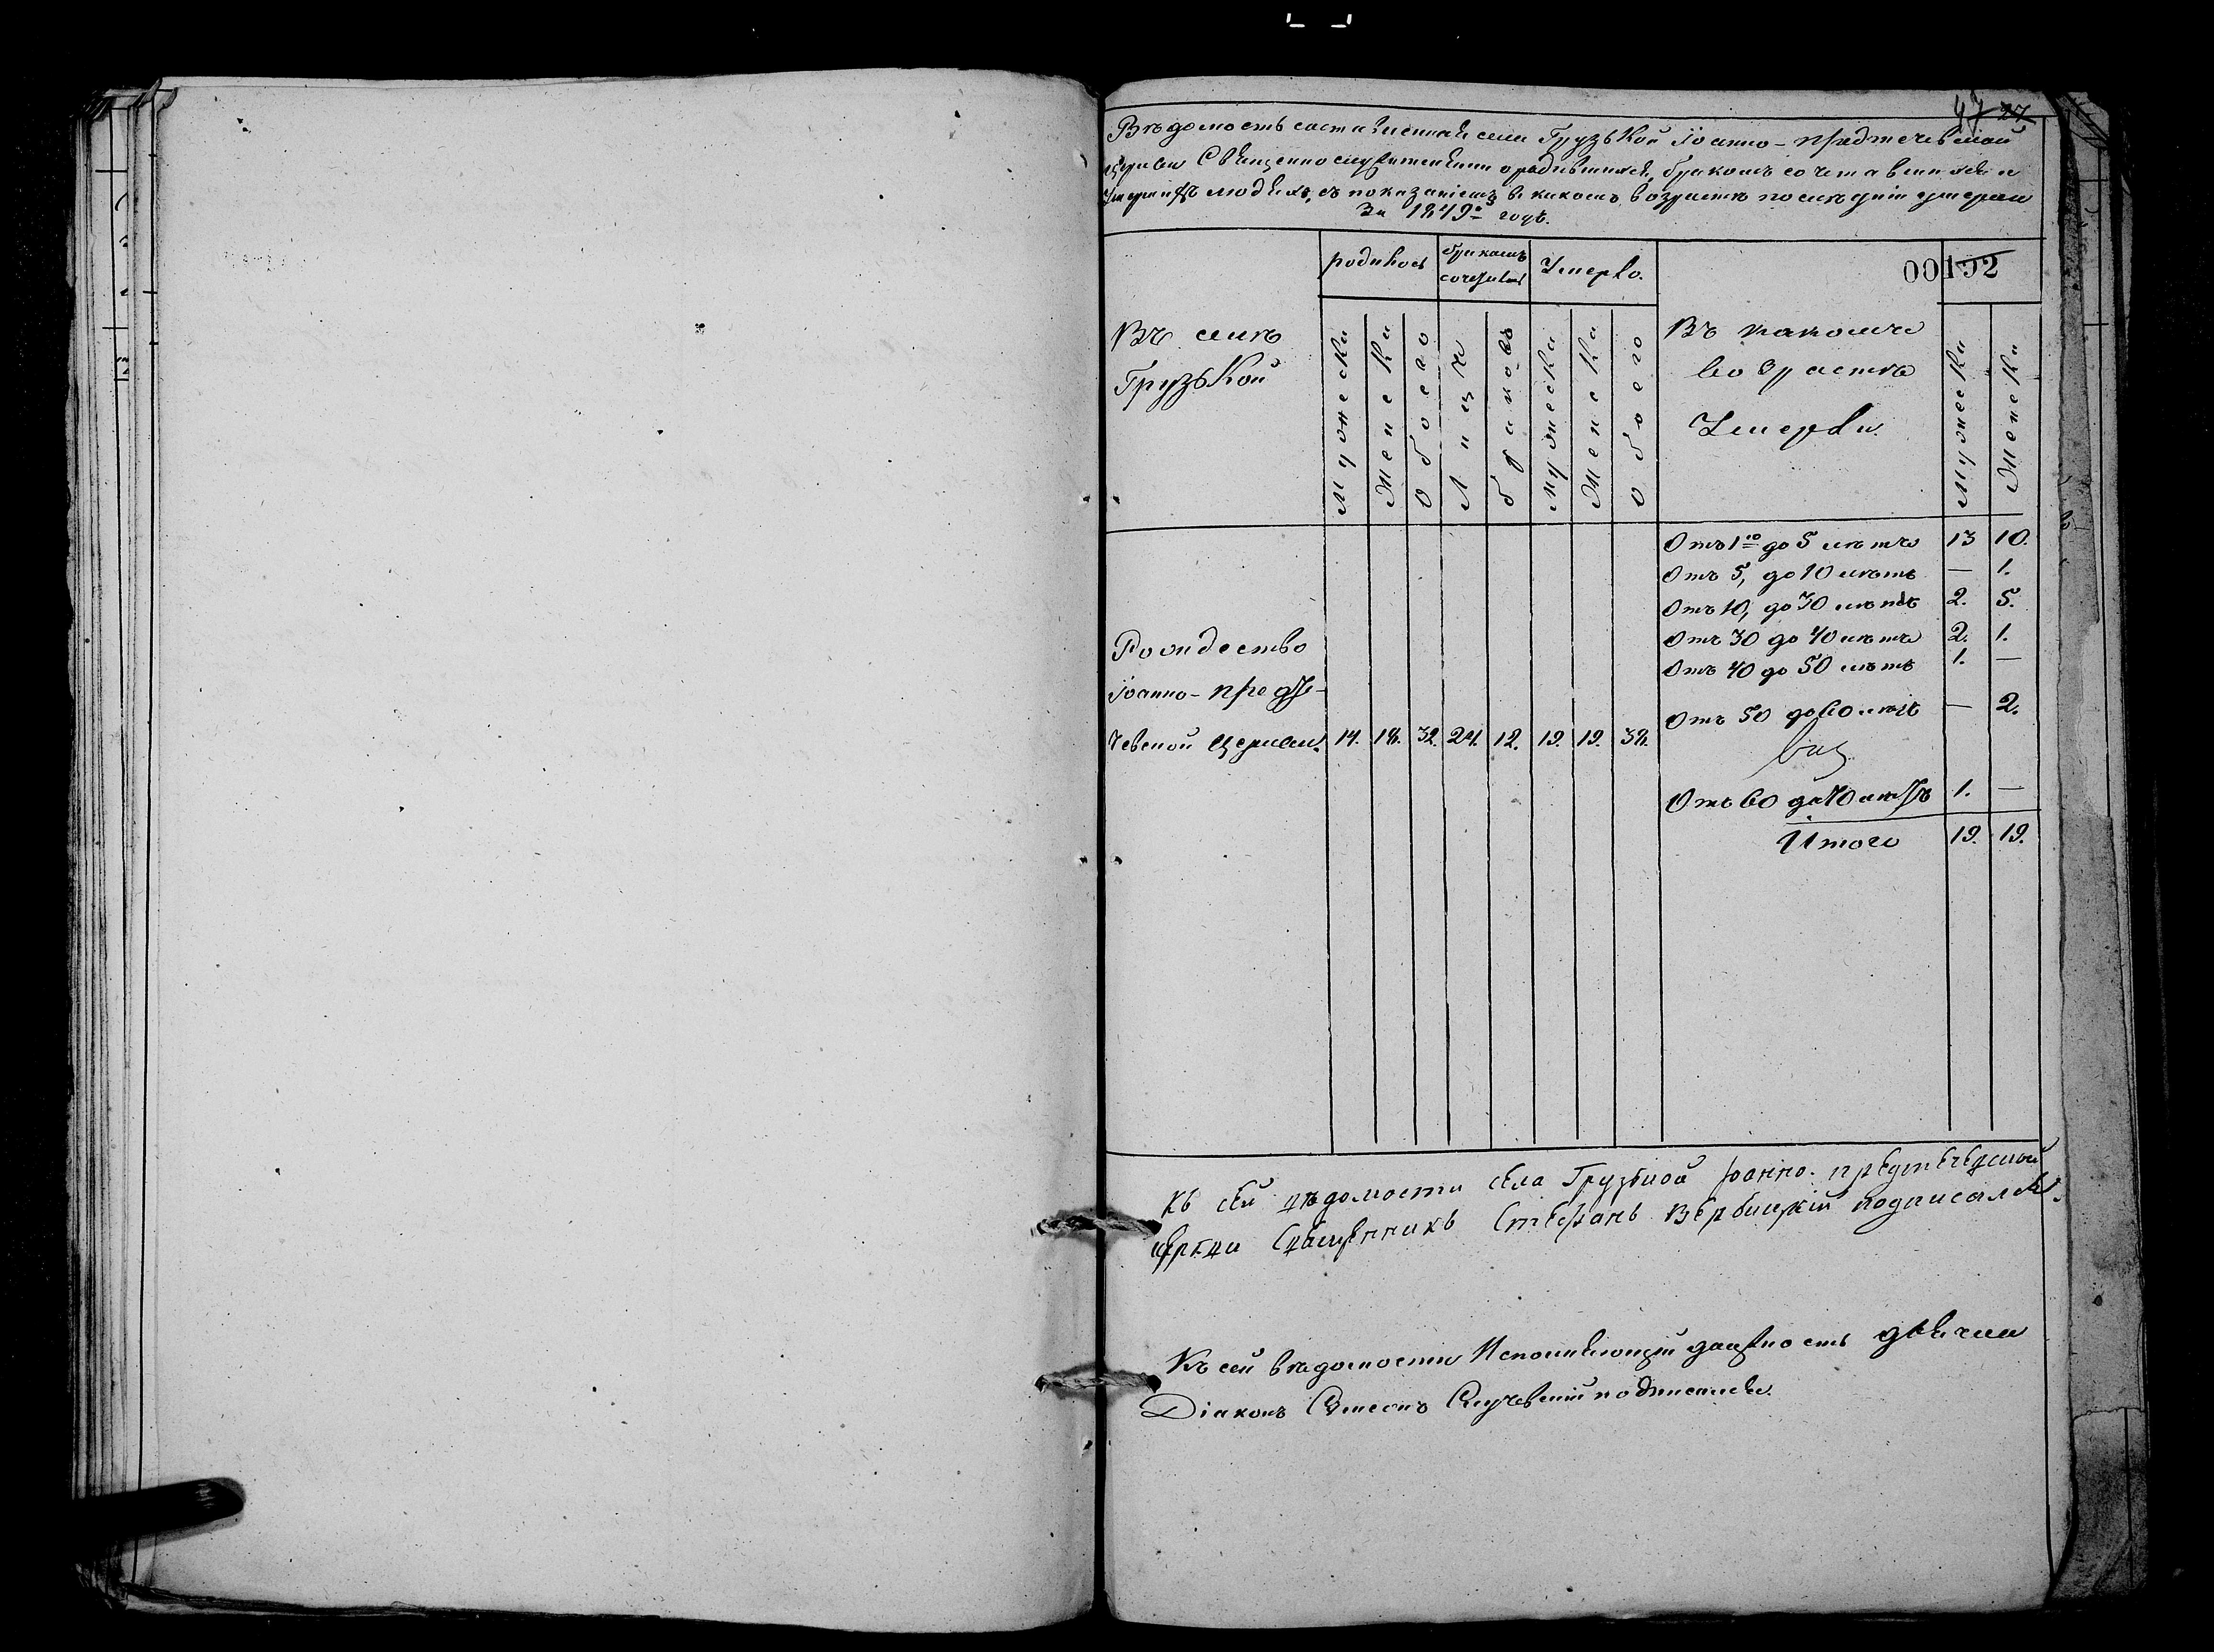 47 27
Вѣдомость составленная села Грузькой Іоанно-предтечевской
Церкви Священнослужителями о родившихся, бракомъ сочетавшихся и
Умершихъ людяхъ, съ показаніемъ въ какомъ возрастѣ последніи умерли
За 1849й годъ.
родилось бракомъ сочетались Умерло. 00192
Въ селѣ Грузькой
Мужеска Женска Обоего Лицъ браковъ мужеска Женска Обоего
Въ какомъ возрастѣ Умерли.
Мужеска Женска
Отъ 1го до 5 лѣтъ 13 10.
Отъ 5, до 10 лѣтъ — 1.
Отъ 10, до 30 лѣтъ 2. 5.
Отъ 30 до 40 лѣтъ 2. 1.
Отъ 40 до 50 лѣтъ 1. —
Отъ 50 до 60 лѣтъ — 2.
Отъ 60 до 70 лѣтъ 1. —
Итого 19. 19.
Рождество
Іоанно-предте-
чевской Церкви. 14. 18. 32. 24. 12. 19. 19. 38.
Къ сей вѣдомости села Грузькой Іоанно-предтечевской
церкви Священникъ Стефанъ Вербицкій подписался.
Къ сей вѣдомости Исполняющій должность дьячка
Діаконъ Симеонъ подписался.